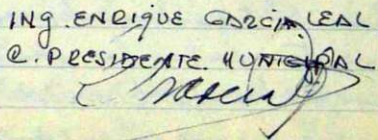 ING. ENRIQUE GARCIA LEAL
C. PRESIDENTE MUNICIPAL